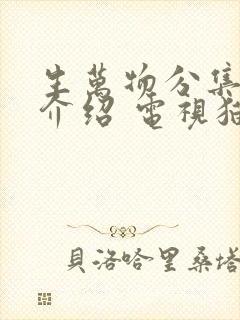 生萬物分集
介紹 電視猫
貝洛哈里桑塔